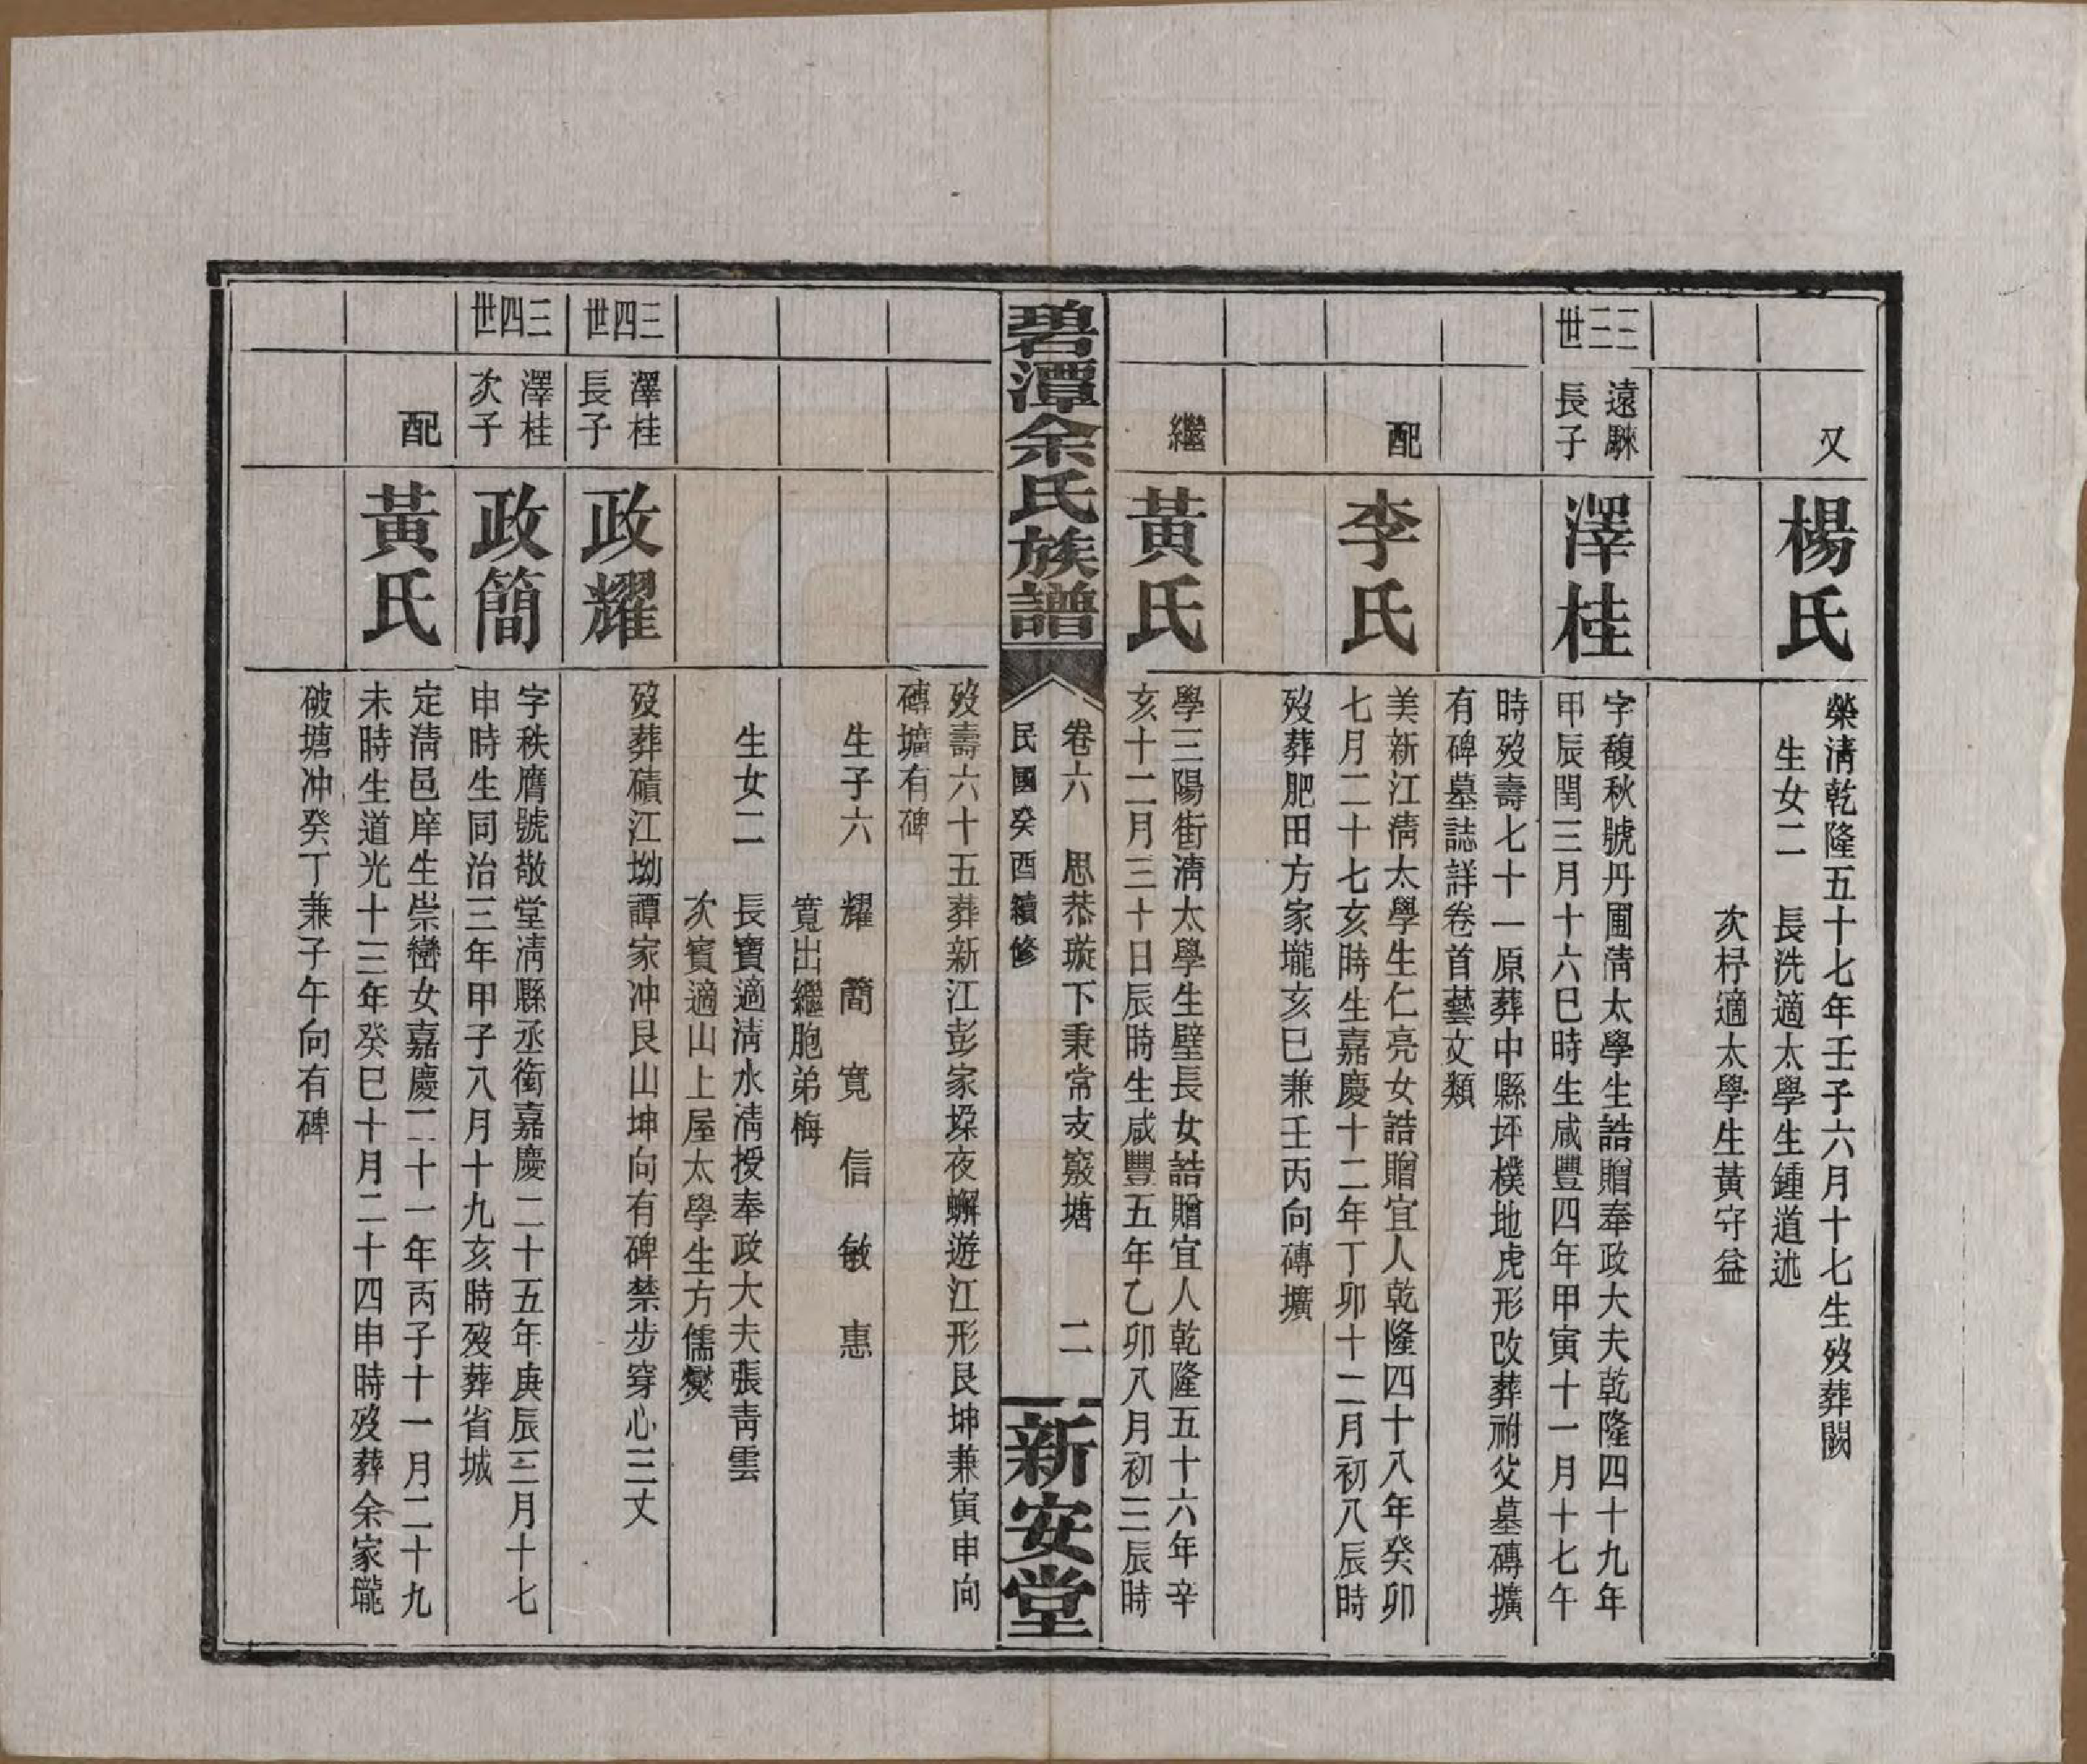 又
楊氏
榮清乾隆五十七年壬子六月十七生歿葬闕
生女二　長洗適太學生鍾道述
次杍適太學生黃守益
三三世
遠騋
長子
澤桂
字馥秋號丹圃清太學生誥贈奉政大夫乾隆四十九年
甲辰閏三月十六巳時生咸豐四年甲寅十一月十七午
時歿壽七十一原葬中縣坪樸地虎形改葬祔父墓磚壙
有碑墓誌詳卷首藝文類
配
李氏
美新江清太學生仁亮女誥贈宜人乾隆四十八年癸卯
七月二十七亥時生嘉慶十二年丁卯十二月初八辰時
歿葬肥田方家壠亥巳兼壬丙向磚壙
繼
黃氏
學三陽街清太學生壁長女誥贈宜人乾隆五十六年辛
亥十二月三十日辰時生咸豐五年乙卯八月初三辰時
碧潭余氏族譜
卷六　思恭璇下秉常支竅塘　二
民國癸酉續修
新安堂
歿壽六十五葬新江彭家垛夜蠏遊江形艮坤兼寅申向
磚壙有碑
生子六　耀　簡　寬　信　敏　惠
寬出繼胞弟梅
生女二　長寶適清水清授奉政大夫張青雲
次賓適山上屋太學生方儒爕
三四世
澤桂
長子
政耀
歿葬磧江坳譚家冲艮山坤向有碑禁步穿心三丈
三四世
澤桂
次子
政簡
字秩膺號敬堂清縣丞銜嘉慶二十五年庚辰三月十七
申時生同治三年甲子八月十九亥時歿葬省城
配
黃氏
定清邑庠生崇巒女嘉慶二十一年丙子十一月二十九
未時生道光十三年癸巳十月二十四申時歿葬余家壠
破塘冲癸丁兼子午向有碑